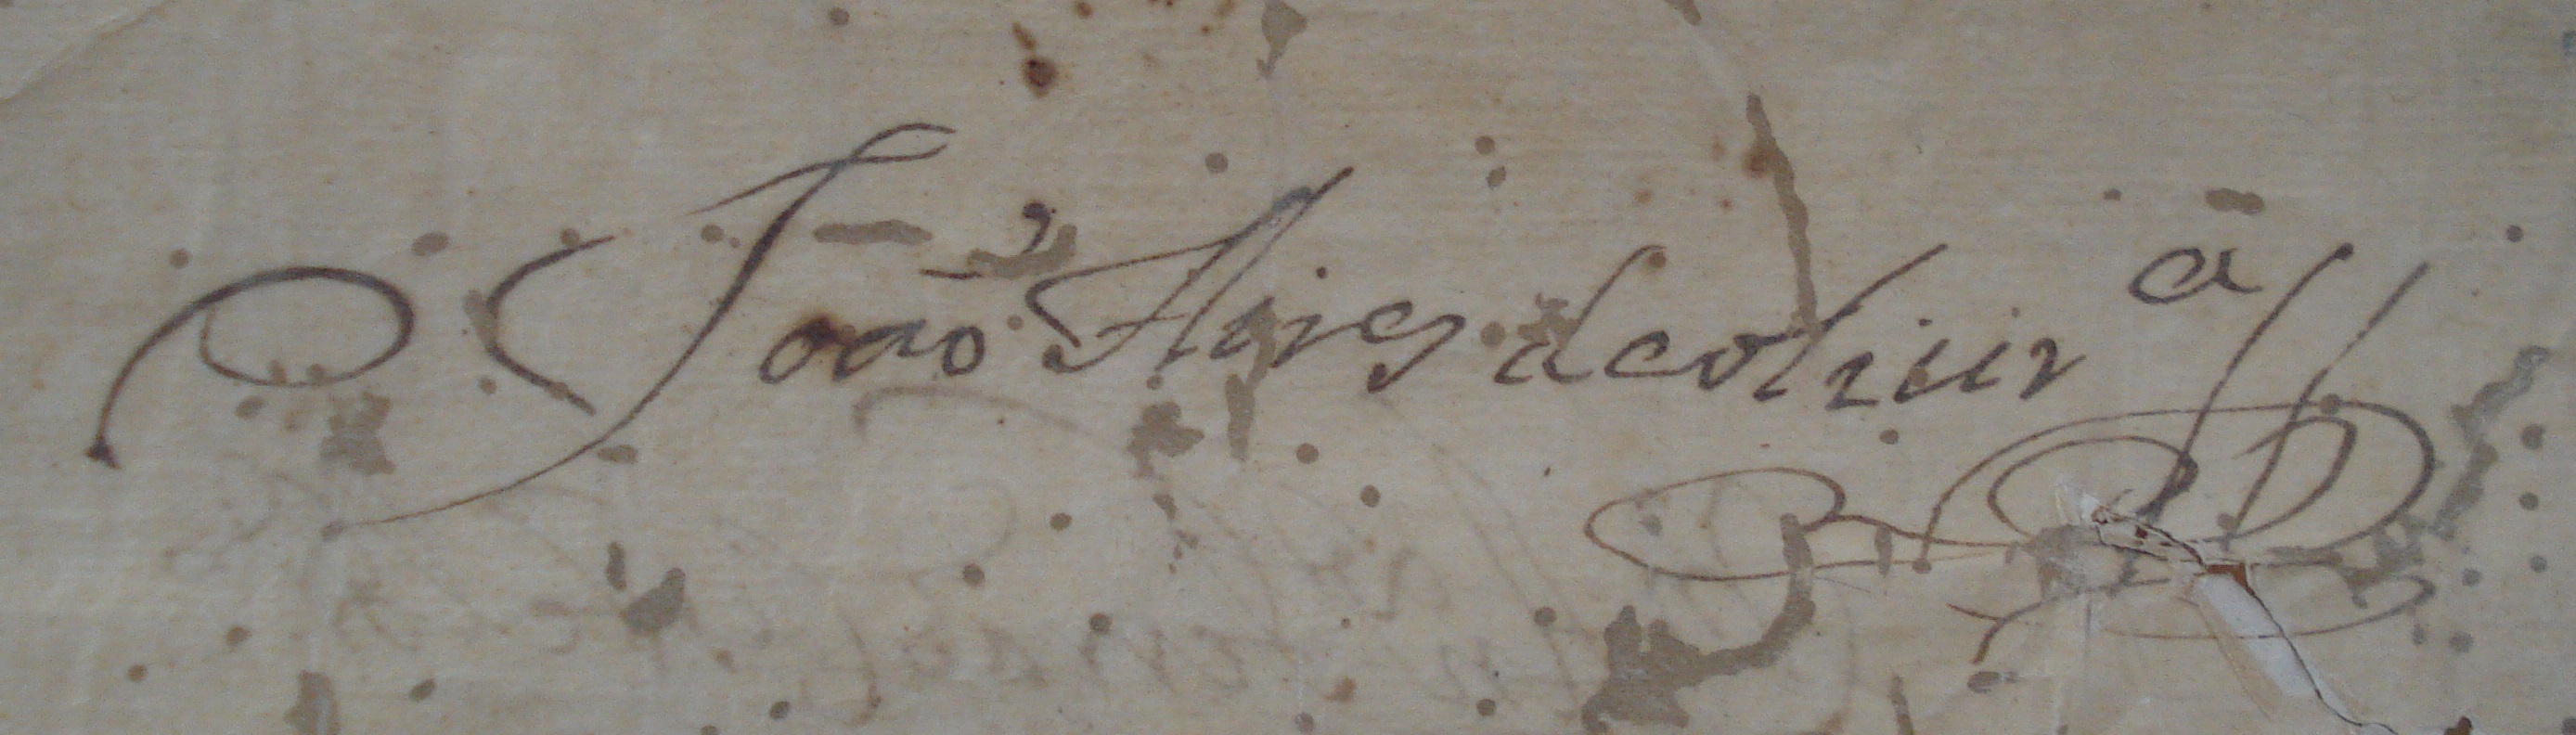 João Alves deoliur.ª